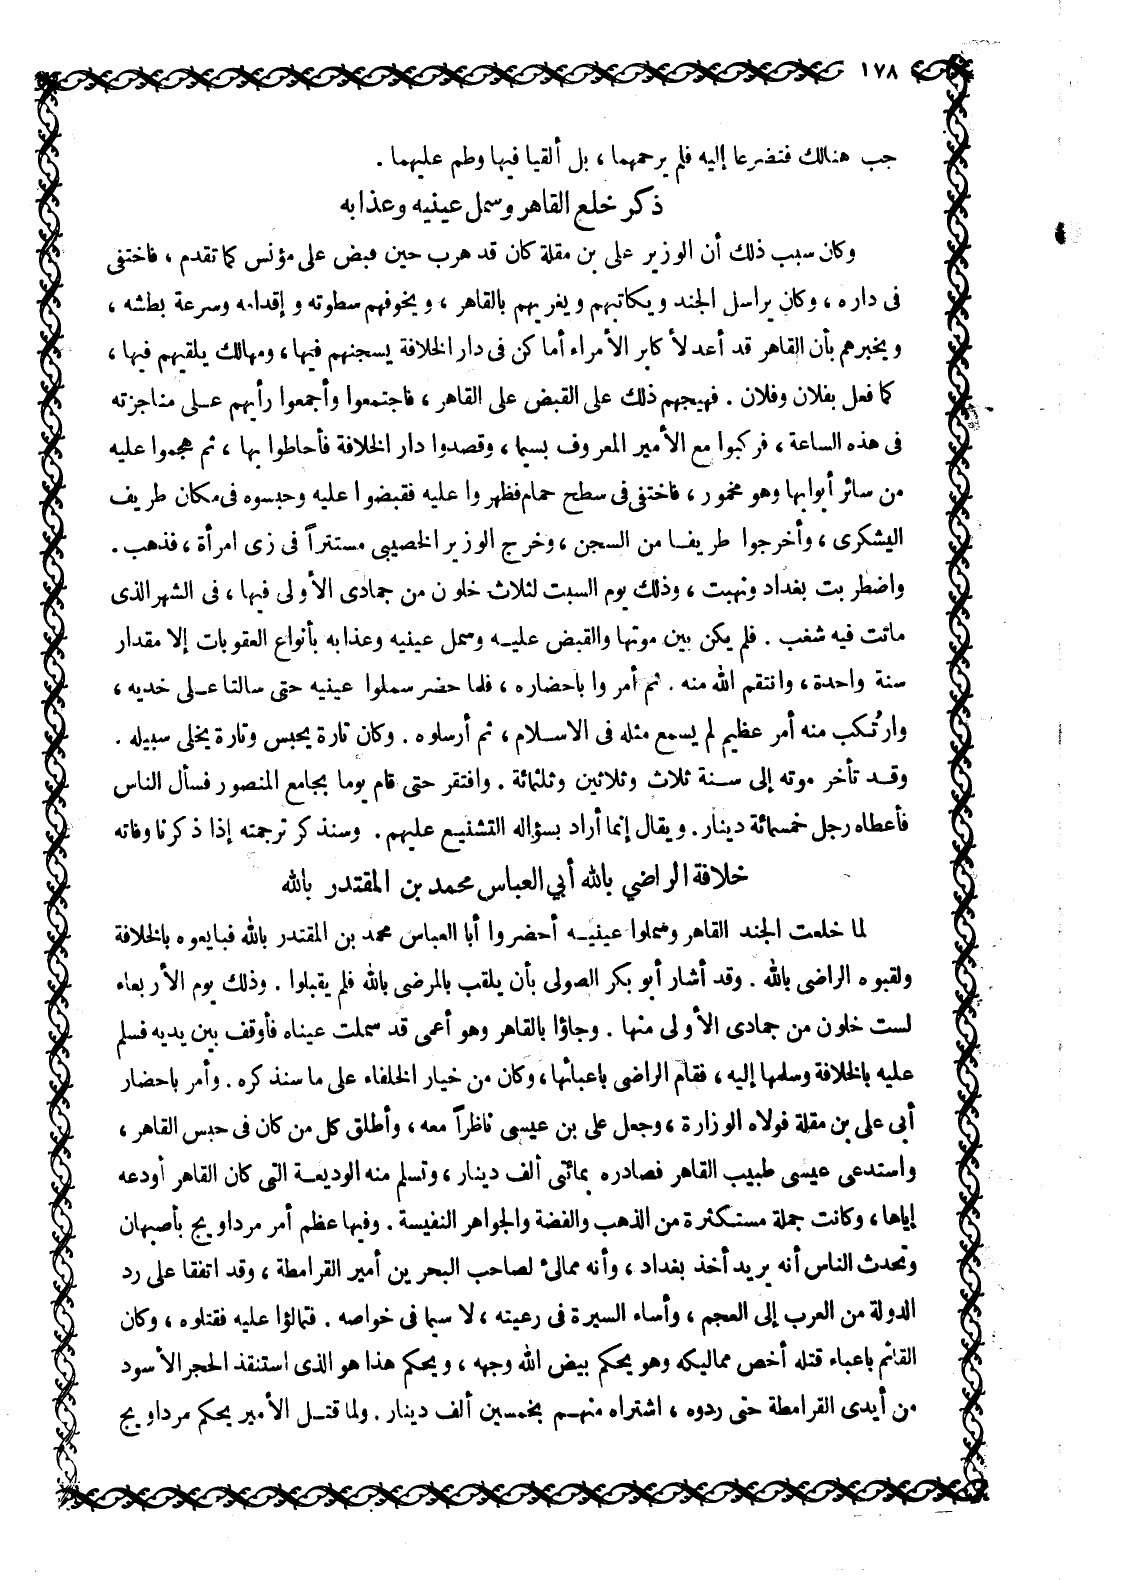 ١٧٨
جب هنالك فتضرعا إليه فلم يرحمهما ، بل ألقيا فيها وطم عليهما .
ذكر خلع القاهر وسمل عينيه وعذابه
وكان سبب ذلك أن الوزير على بن مقلة كان قد هرب حين قبض على مؤنس كما تقدم ، فاختفى
فى داره ، وكان يراسل الجند ويكاتبهم ويغريهم بالقاهر ، ويخوفهم سطوته و إقدامه وسرعة بطشه ،
ويخبرهم بأن القاهر قد أعد لأكابر الأمراء أماكن فى دار الخلافة يسجنهم فيها ، ومهالك يلقيهم فيها ،
كما فعل بفلان وفلان . فهيجهم ذلك على القبض على القاهر ، فاجتمعوا وأجمعوا رأيهم على مناجزته
فى هذه الساعة ، فركبوا مع الأمير المعروف بسيما ، وقصدوا دار الخلافة فأحاطوا بها ، ثم هجموا عليه
من سائر أبوابها وهو مخمور ، فاختفى فى سطح حمام فظهروا عليه فقبضوا عليه وحبسوه فى مكان طريف
اليشكرى ، وأخرجوا طريفا من السجن ، وخرج الوزير الخصيبى مستتراً فى زى امرأة ، فذهب .
واضطربت بغداد ونهبت ، وذلك يوم السبت لثلاث خلون من جمادى الأولى فيها ، فى الشهر الذى
ماتت فيه شغب . فلم يكن بين موتها والقبض عليه وسمل عينيه وعذابه بأنواع العقوبات إلا مقدار
سنة واحدة ، وانتقم الله منه . ثم أمروا باحضاره ، فلما حضر سملوا عينيه حتى سالتا على خديه ،
وارتُكب منه أمر عظيم لم يسمع مثله فى الاسلام ، ثم أرسلوه . وكان تارة يحبس وتارة يخلى سبيله .
وقد تأخر موته إلى سنة ثلاث وثلاثين وثلثمائة . وافتقر حتى قام يوما بجامع المنصور فسأل الناس
فأعطاه رجل خمسمائة دينار . ويقال إنما أراد بسؤاله التشنيع عليهم . وسنذكر ترجمته إذا ذكرنا وفاته
خلافة الراضي بالله أبي العباس محمد بن المقتدر بالله
لما خلعت الجند القاهر وسملوا عينيه أحضروا أبا العباس محمد بن المقتدر بالله فبايعوه بالخلافة
ولقبوه الراضى بالله . وقد أشار أبو بكر الصولى بأن يلقب بالمرضى بالله فلم يقبلوا . وذلك يوم الأربعاء
لست خلون من جمادى الأولى منها . وجاؤا بالقاهر وهو أعمى قد سملت عيناه فأوقف بين يديه فسلم
عليه بالخلافة وسلمها إليه ، فقام الراضى باعبائها ، وكان من خيار الخلفاء على ما سنذكره . وأمر باحضار
أبى على بن مقلة فولاه الوزارة ، وجعل على بن عيسى ناظراً معه ، وأطلق كل من كان فى حبس القاهر ،
واستدعى عيسى طبيب القاهر فصادره بمائتى ألف دينار ، وتسلم منه الوديعة التى كان القاهر أودعه
إياها ، وكانت جملة مستكثرة من الذهب والفضة والجواهر النفيسة . وفيها عظم أمر مرداويج بأصبهان
وتحدث الناس أنه يريد أخذ بغداد ، وأنه ممالئ لصاحب البحرين أمير القرامطة ، وقد اتفقا على رد
الدولة من العرب إلى العجم ، وأساء السيرة فى رعيته ، لا سيما فى خواصه . فتمالؤا عليه فقتلوه ، وكان
القائم باعباء قتله أخص مماليكه وهو بحكم بيض الله وجهه ، وبحكم هذا هو الذى استنقذ الحجر الأسود
من أيدى القرامطة حتى ردوه ، اشتراه منهم بخمسين ألف دينار . ولما قتل الأمير بحكم مرداويج